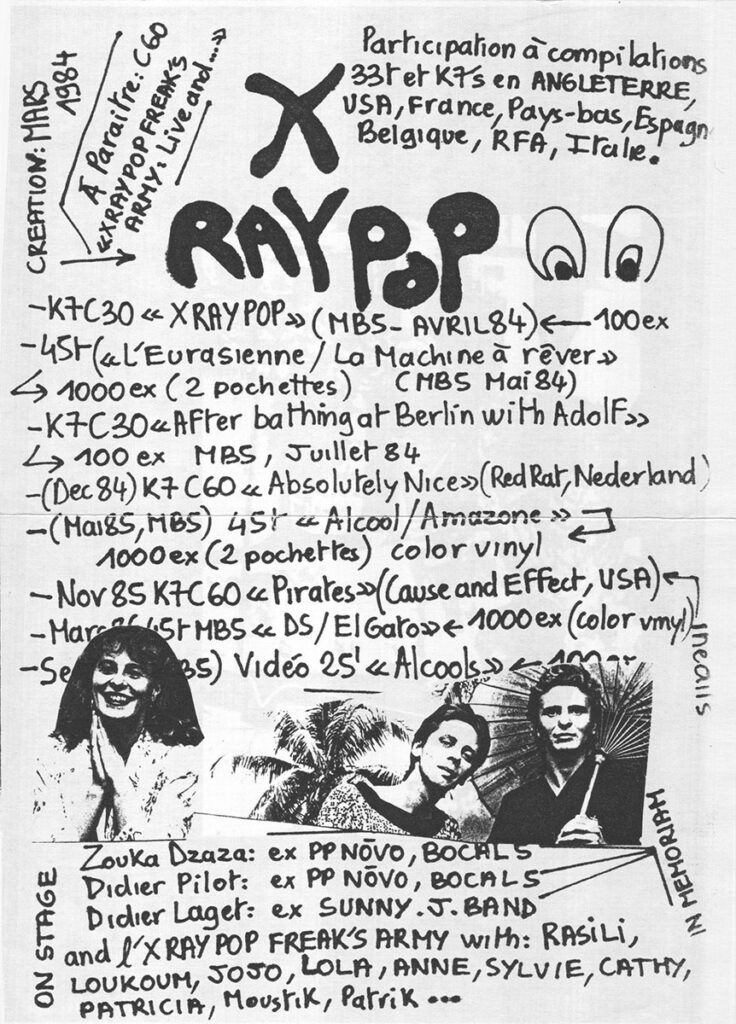 CREATION: MARS
1984
À Paraitre: C60
«XRAY POP FREAK'S
ARMY: Live and...»
Participation à compilations
33t et K7s en ANGLETERRE,
USA, France, Pays-bas, Espagn
Belgique, RFA, Italie.
X
RAY POP
-K7C30 « XRAY POP» (MBS-AVRIL84) ← 100ex
-45t («L'Eurasienne / La Machine à rêver»
↳ 1000ex (2 pochettes) (MBS Mai84)
-K7C30 «AFter bathing at Berlin with AdolF»
↳ 100 ex MBS, Juillet 84
-(Dec84) K7C60 « Absolutely Nice» (Red Rat, Nederland)
-(Mai85, MBS) 45t « Alcool/Amazone »
1000ex (2 pochettes) color vinyl
-Nov 85 K7C60 « Pirates» (Cause and EFFect, USA) ←
inedits
-Mars 86 45t MBS « DS/El Gato» ← 1000ex (color vinyl)
-Se Vidéo 25' « Alcools» ←
ON STAGE
Zouka Dzaza: ex PP NŌVO, BOCAL5
Didier Pilot: ex PP NŌVO, BOCAL5
Didier Laget: ex SUNNY.J.BAND
IN MEMORIAM
and l'XRAY POP FREAK'S ARMY with: RASILI,
LOUKOUM, JOJO, LOLA, ANNE, SYLVIE, CATHY,
PATRICIA, Moustik, Patrik ...